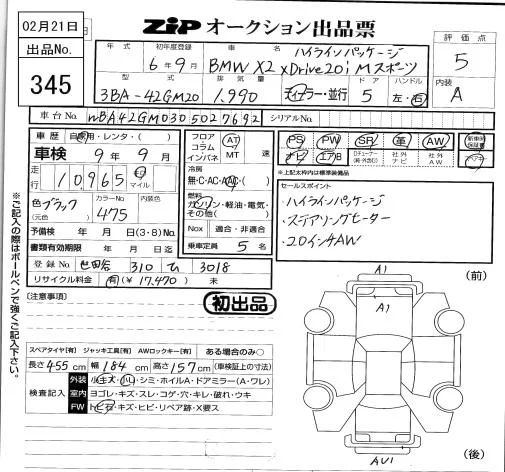 02月21日
出品No.
345
ZIP オークション出品票
年式 初年度登録 車名
6年9月 BMW X2 xDrive20i Mスポーツ
ハイラインパッケージ
評価点
5
型式 排気量 ドア ハンドル
3BA-42GM20 1,990 ディーラー・並行 5 左・右
内装
A
車台No. WBA42GM0305027692 シリアルNo.
車歴 自家用・レンタ・( )
車検 9年9月
走行 10965 km マイル
色 ブラック カラーNo. 内装色
(元色) 475
予備検 年 月 日(3・8)No.
書類有効期限 年 月 日迄
登録No 世田谷 310 ひ 3018
リサイクル料金 (有)(¥17,470) 未
フロア
コラム
インパネ
AT
MT 速
冷房
無・C・AC・AAC
燃料
ガソリン・軽油・電気・
その他( )
Nox 適合・非適合
乗車定員 5名
PS PW SR 革 AW
ナビ エアB Dチューナー (純・外含む) 社外ナビ 社外AW
新車時保証書
※上記太枠内は標準装備品
セールスポイント
ハイラインパッケージ
ステアリングヒーター
20インチAW
※ご記入の際はボールペンで強くご記入下さい。
(注意事項)
初出品
スペアタイヤ【有】 ジャッキ工具【有】 AWロックキー【有】 ある場合のみ○
長さ455cm 幅184cm 高さ157cm (車検証上の寸法)
検査記入
外装 小キズ・小凹・シミ・ホイルA・ドアミラー(A・ワレ)
室内 ヨゴレ・キズ・スレ・コゲ・穴・キレ・破れ・ウキ
FW トビ石・キズ・ヒビ・リペア跡・X要ス
A1 (前)
A1
AU1 (後)